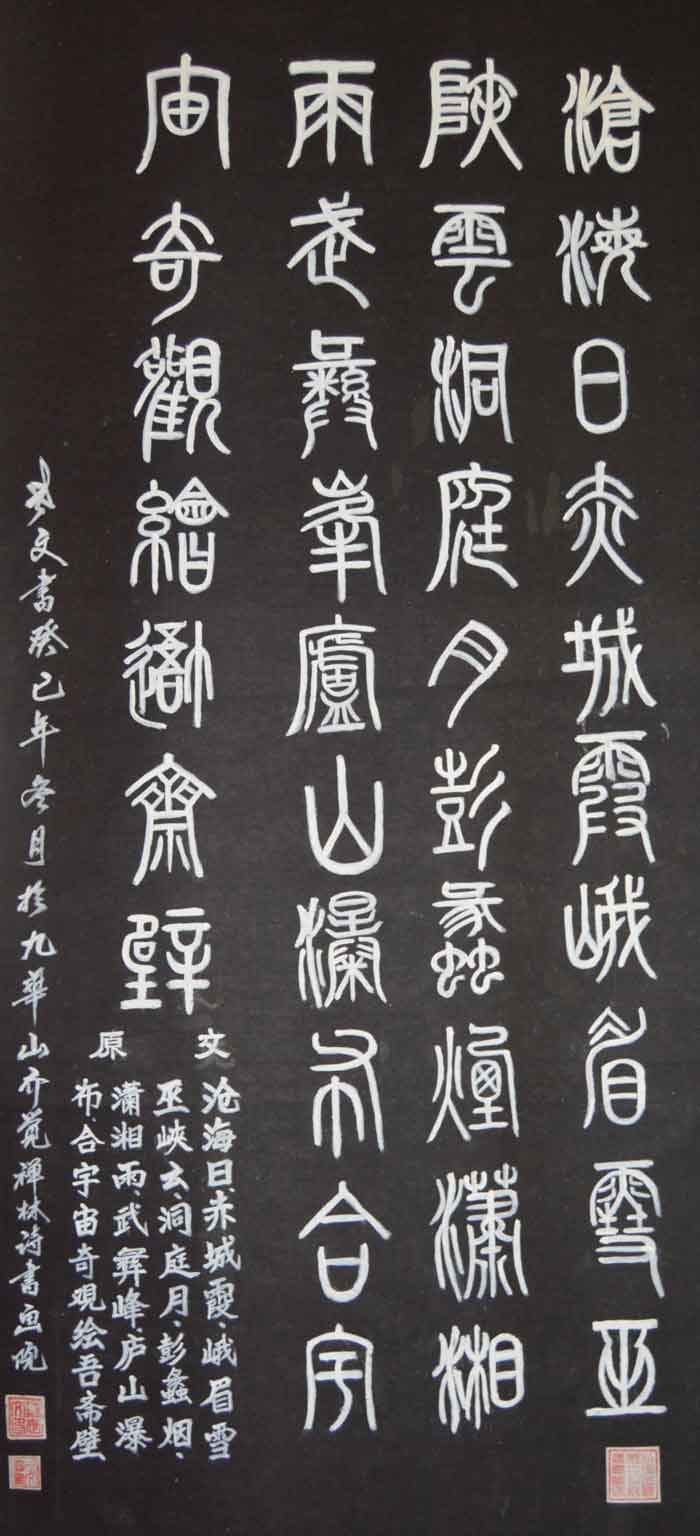 滄海日赤城霞峨眉雪巫
陝雲洞庭月彭蠡煙瀟湘
雨武彝峯廬山瀑布合宇
宙奇觀繪衙齋壁
原文
沧海日、赤城霞、峨眉雪
巫峡云、洞庭月、彭蠡烟、
潇湘雨、武彝峰、庐山瀑
布、合宇宙奇观绘吾斋壁
文書癸巳年冬月於九華山齐觉禅林诗書画院